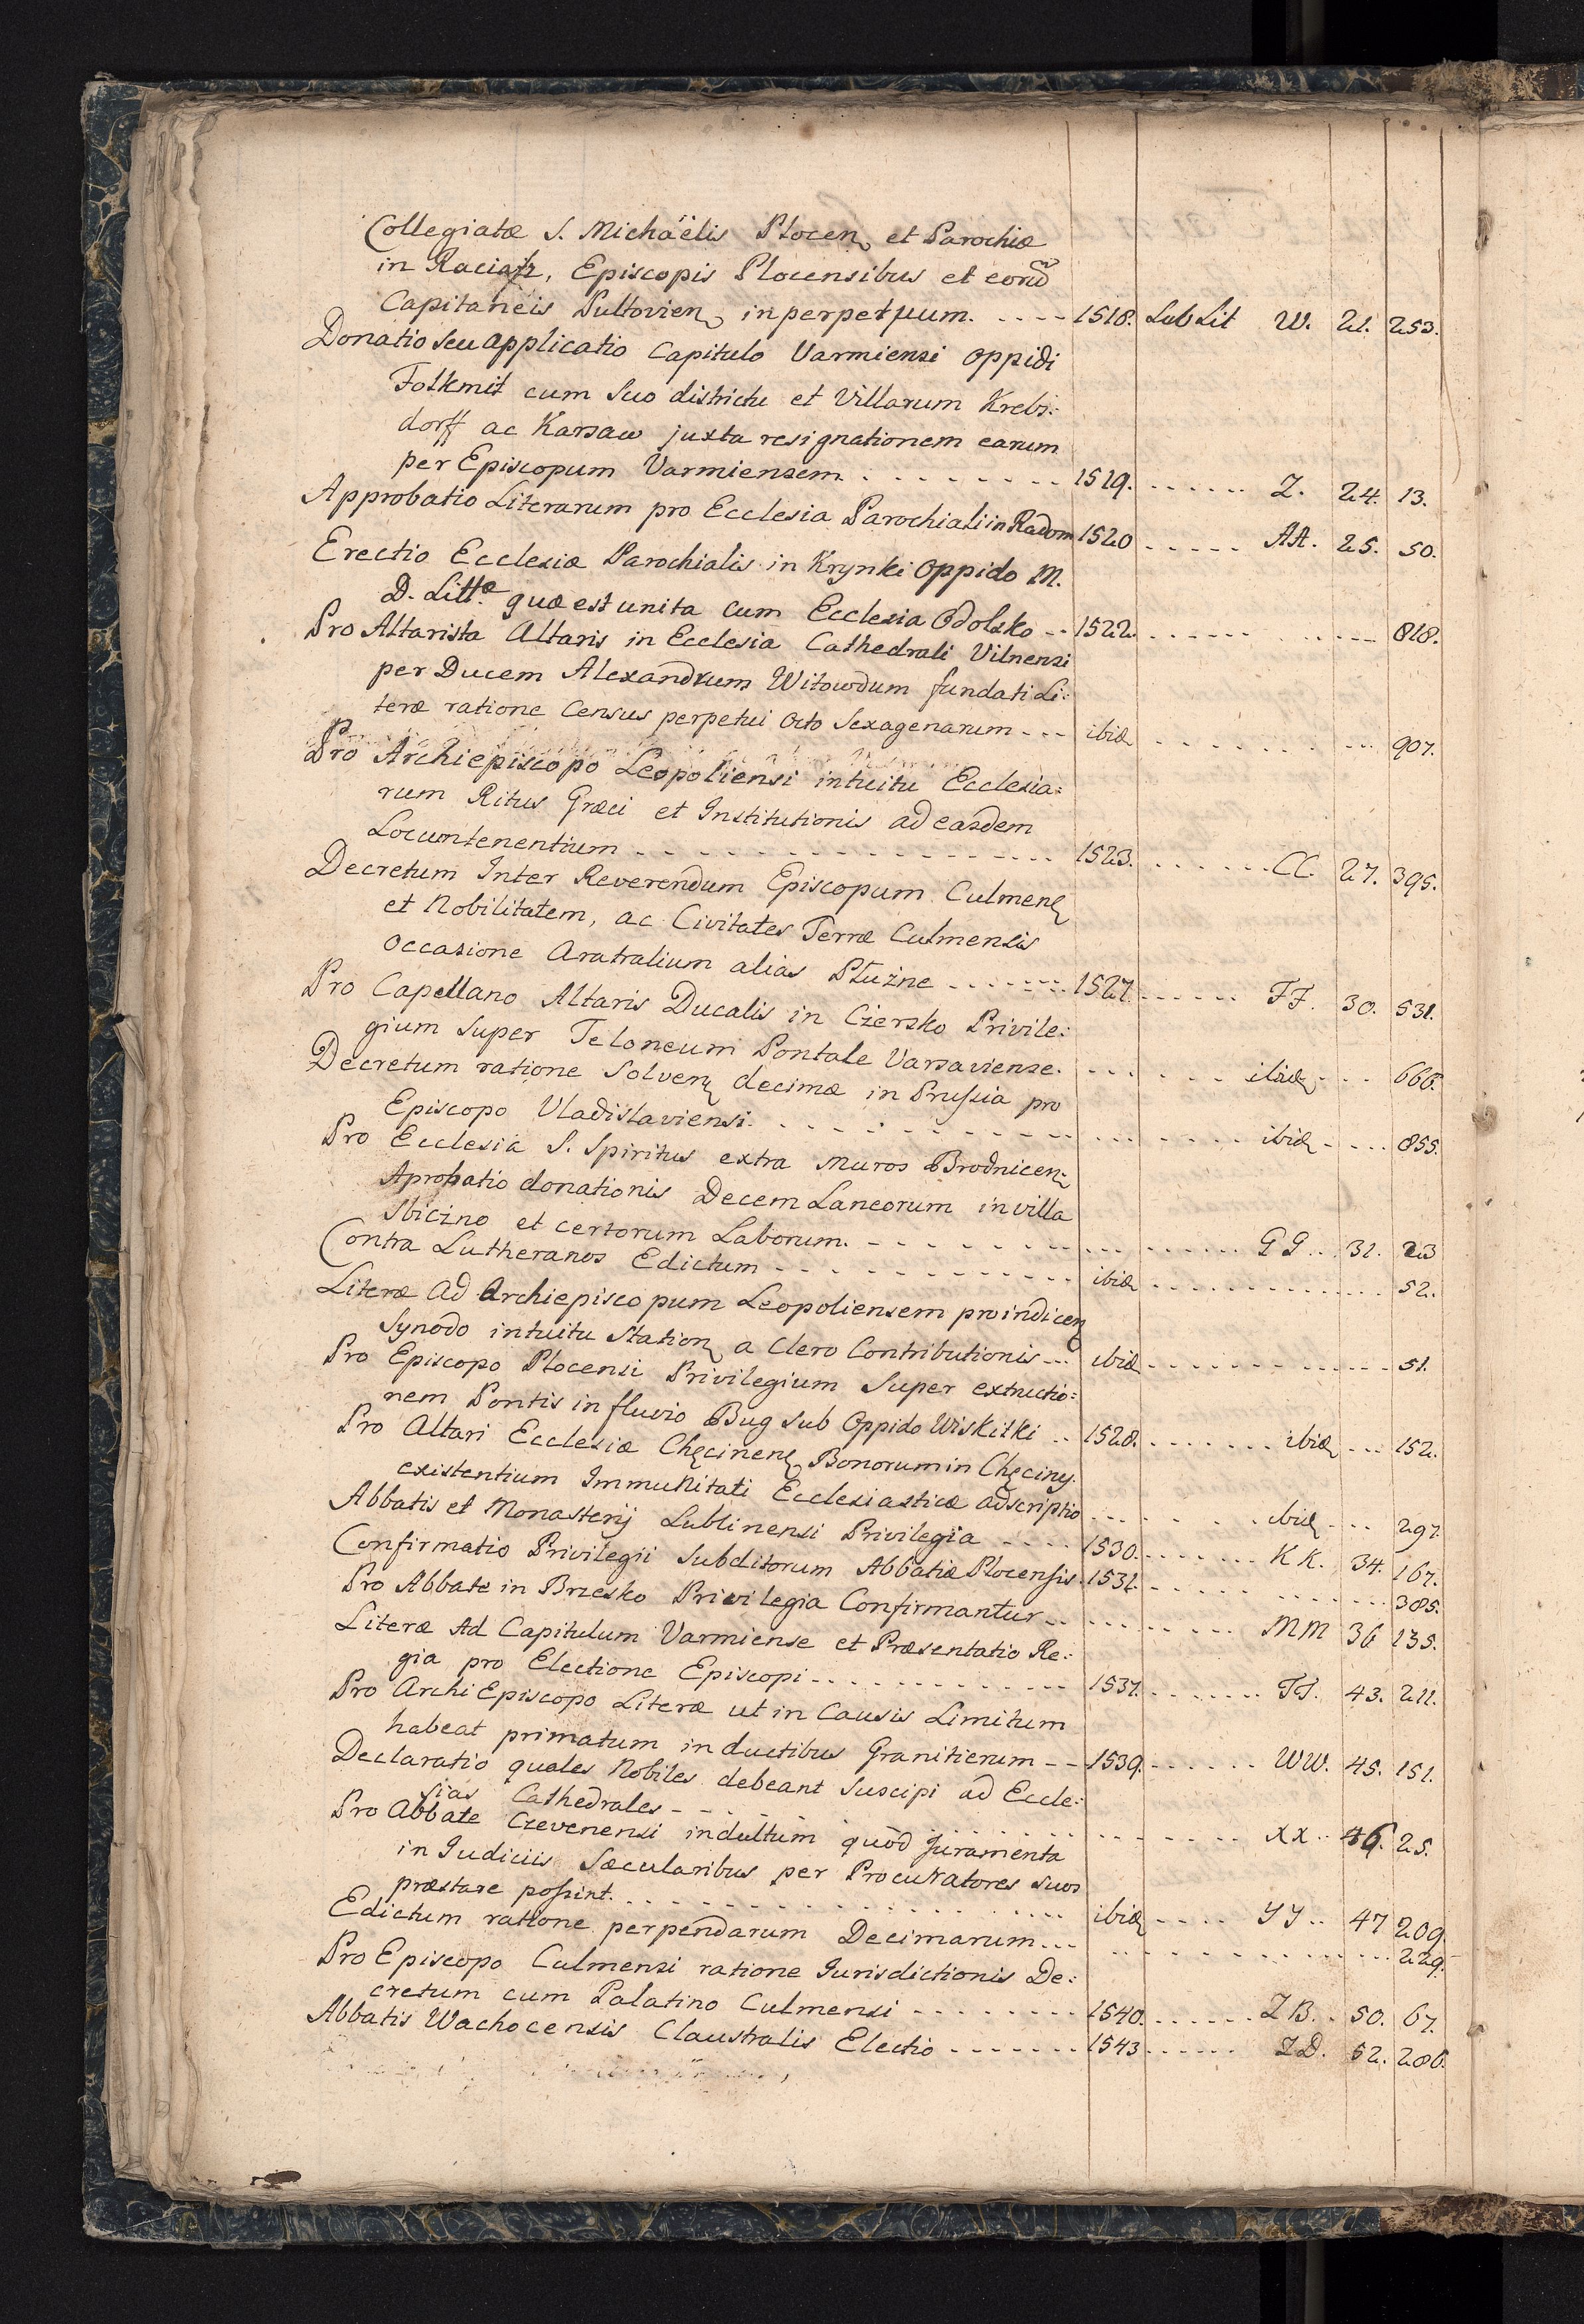 Collegiatæ S. Michäelis Plocen et Parochiæ
in Raciąż, Episcopis Plocensibus et eorū
Capitaneis Pultovien in perpetuum. .... 1518. Sub Lit W. 21. 253.
Donatio seu applicatio Capitulo Varmiensi oppidi
Tolkmit cum suo districtu et Villarum Krebs:
dorff ac Karsaw juxta resignationem earum
per Episcopum Varmiensem. ........ 1519. ...... Z. 24. 13.
Approbatio Literarum pro Ecclesia Parochiali in Radom 1520 ..... AA. 25. 50.
Erectio Ecclesiæ Parochialis in Krynki Oppido M.
D. Littæ quæ est unita cum Ecclesia Odolsko .. 1522. ...... .... 818.
Pro Altarista Altaris in Ecclesia Cathedrali Vilnensi
per Ducem Alexandrum Witowdum fundati Li:
teræ ratione Census perpetui octo Sexagenarum ... ibid ....... ... 907.
Pro Archiepiscopo Leopoliensi intuitu Ecclesia:
rum Ritus Græci et Institutionis ad easdem
Locumtenentium .................. 1523. ...... CC. 27. 395.
Decretum Inter Reverendum Episcopum Culmen
et Nobilitatem, ac Civitates Terræ Culmensis
occasione Aratralium alias Płużne ....... 1527. ...... FF. 30. 531.
Pro Capellano Altaris Ducalis in Czersko Privile:
gium super Teloneum Pontale Varsaviense. ... .... ibid ... 666.
Decretum ratione solven decimæ in Prussia pro
Episcopo Vladislaviensi. ............ ... .... ibid .... 855.
Pro Ecclesia S. Spiritus extra muros Brodnicen
Aprobatio donationis Decem Laneorum in villa
Sbiczno et certorum Laborum. ......... ... ...... GG .. 31. 23
Contra Lutheranos Edictum ............ ibid .............. 52.
Literæ ad Archiepiscopum Leopoliensem pro indicen
Synodo intuitu Station a Clero Contributionis ... ibid ............. 51.
Pro Episcopo Plocensi Privilegium super extructio:
nem Pontis in fluvio Bug sub Oppido Wiskitki .. 1528. ....... ibid ... 152.
Pro Altari Ecclesiæ Chęcinen Bonorum in Chęciny
existentium Immunitati Ecclesiasticæ adscriptio ... .... ibid ... 297.
Abbatis et Monasterij Lublinensi Privilegia .... 1530. ....... KK. 34. 167.
Confirmatio Privilegii subditorum Abbatiæ Plocensis. 1531. ...... ....... 385.
Pro Abbate in Brzesko Privilegia Confirmantur .. ......... MM 36 135.
Literæ Ad Capitulum Varmiense et Præsentatio Re:
gia pro Electione Episcopi .............. 1537. ....... TT. 43. 211.
Pro Archi Episcopo Literæ ut in Causis Limitum
habeat primatum in ductibus Granitierum .. 1539. ...... WW. 45. 151.
Declaratio quales Nobiles debeant suscipi ad Eccle:
sias Cathedrales ............ ....... XX .. 46. 25.
Pro Abbate Czevenensi indultum quod Juramenta
in Judiciis Sæcularibus per Procuratores suos
præstare possint. ................ ibid .... YY .. 47 209.
Edictum ratione perpendarum Decimarum ... .............. 229.
Pro Episcopo Culmensi ratione Jurisdictionis De:
cretum cum Palatino Culmensi ........ 1540. ...... ZB. . 50. 67.
Abbatis Wachocensis Claustralis Electio ....... 1543 ...... ZD. 52. 286.